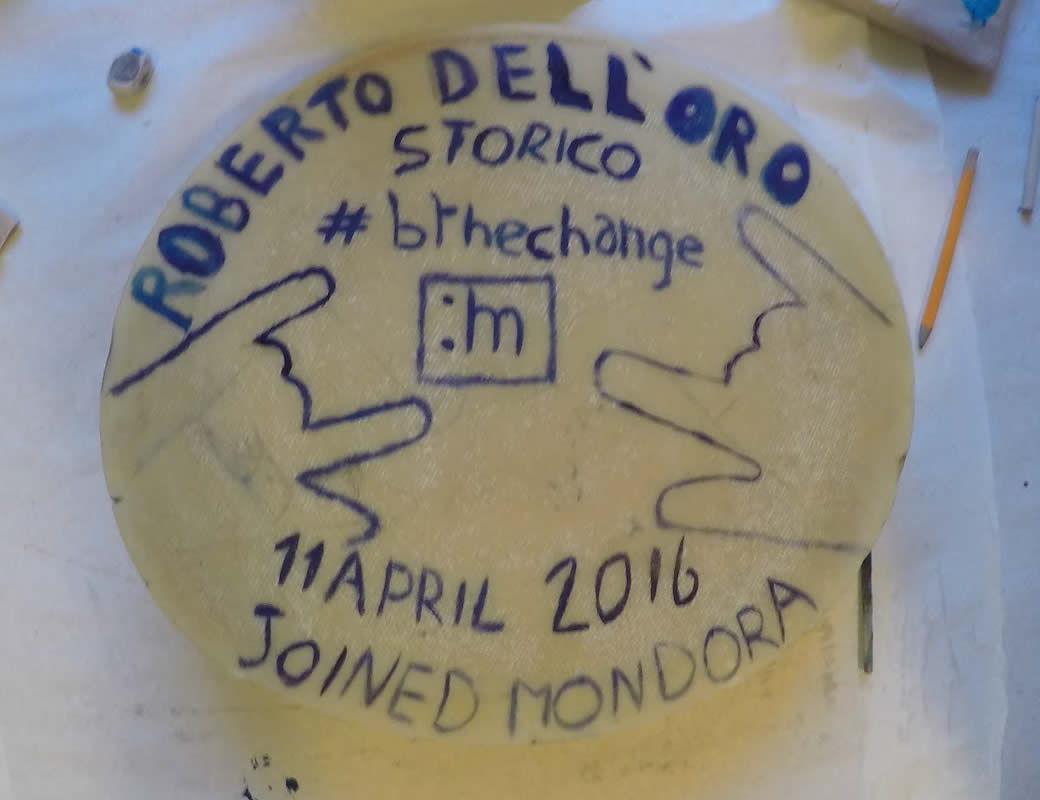 ROBERTO DELL'ORO
STORICO
#bthechange
:m
11 APRIL 2016
JOINED MONDORA